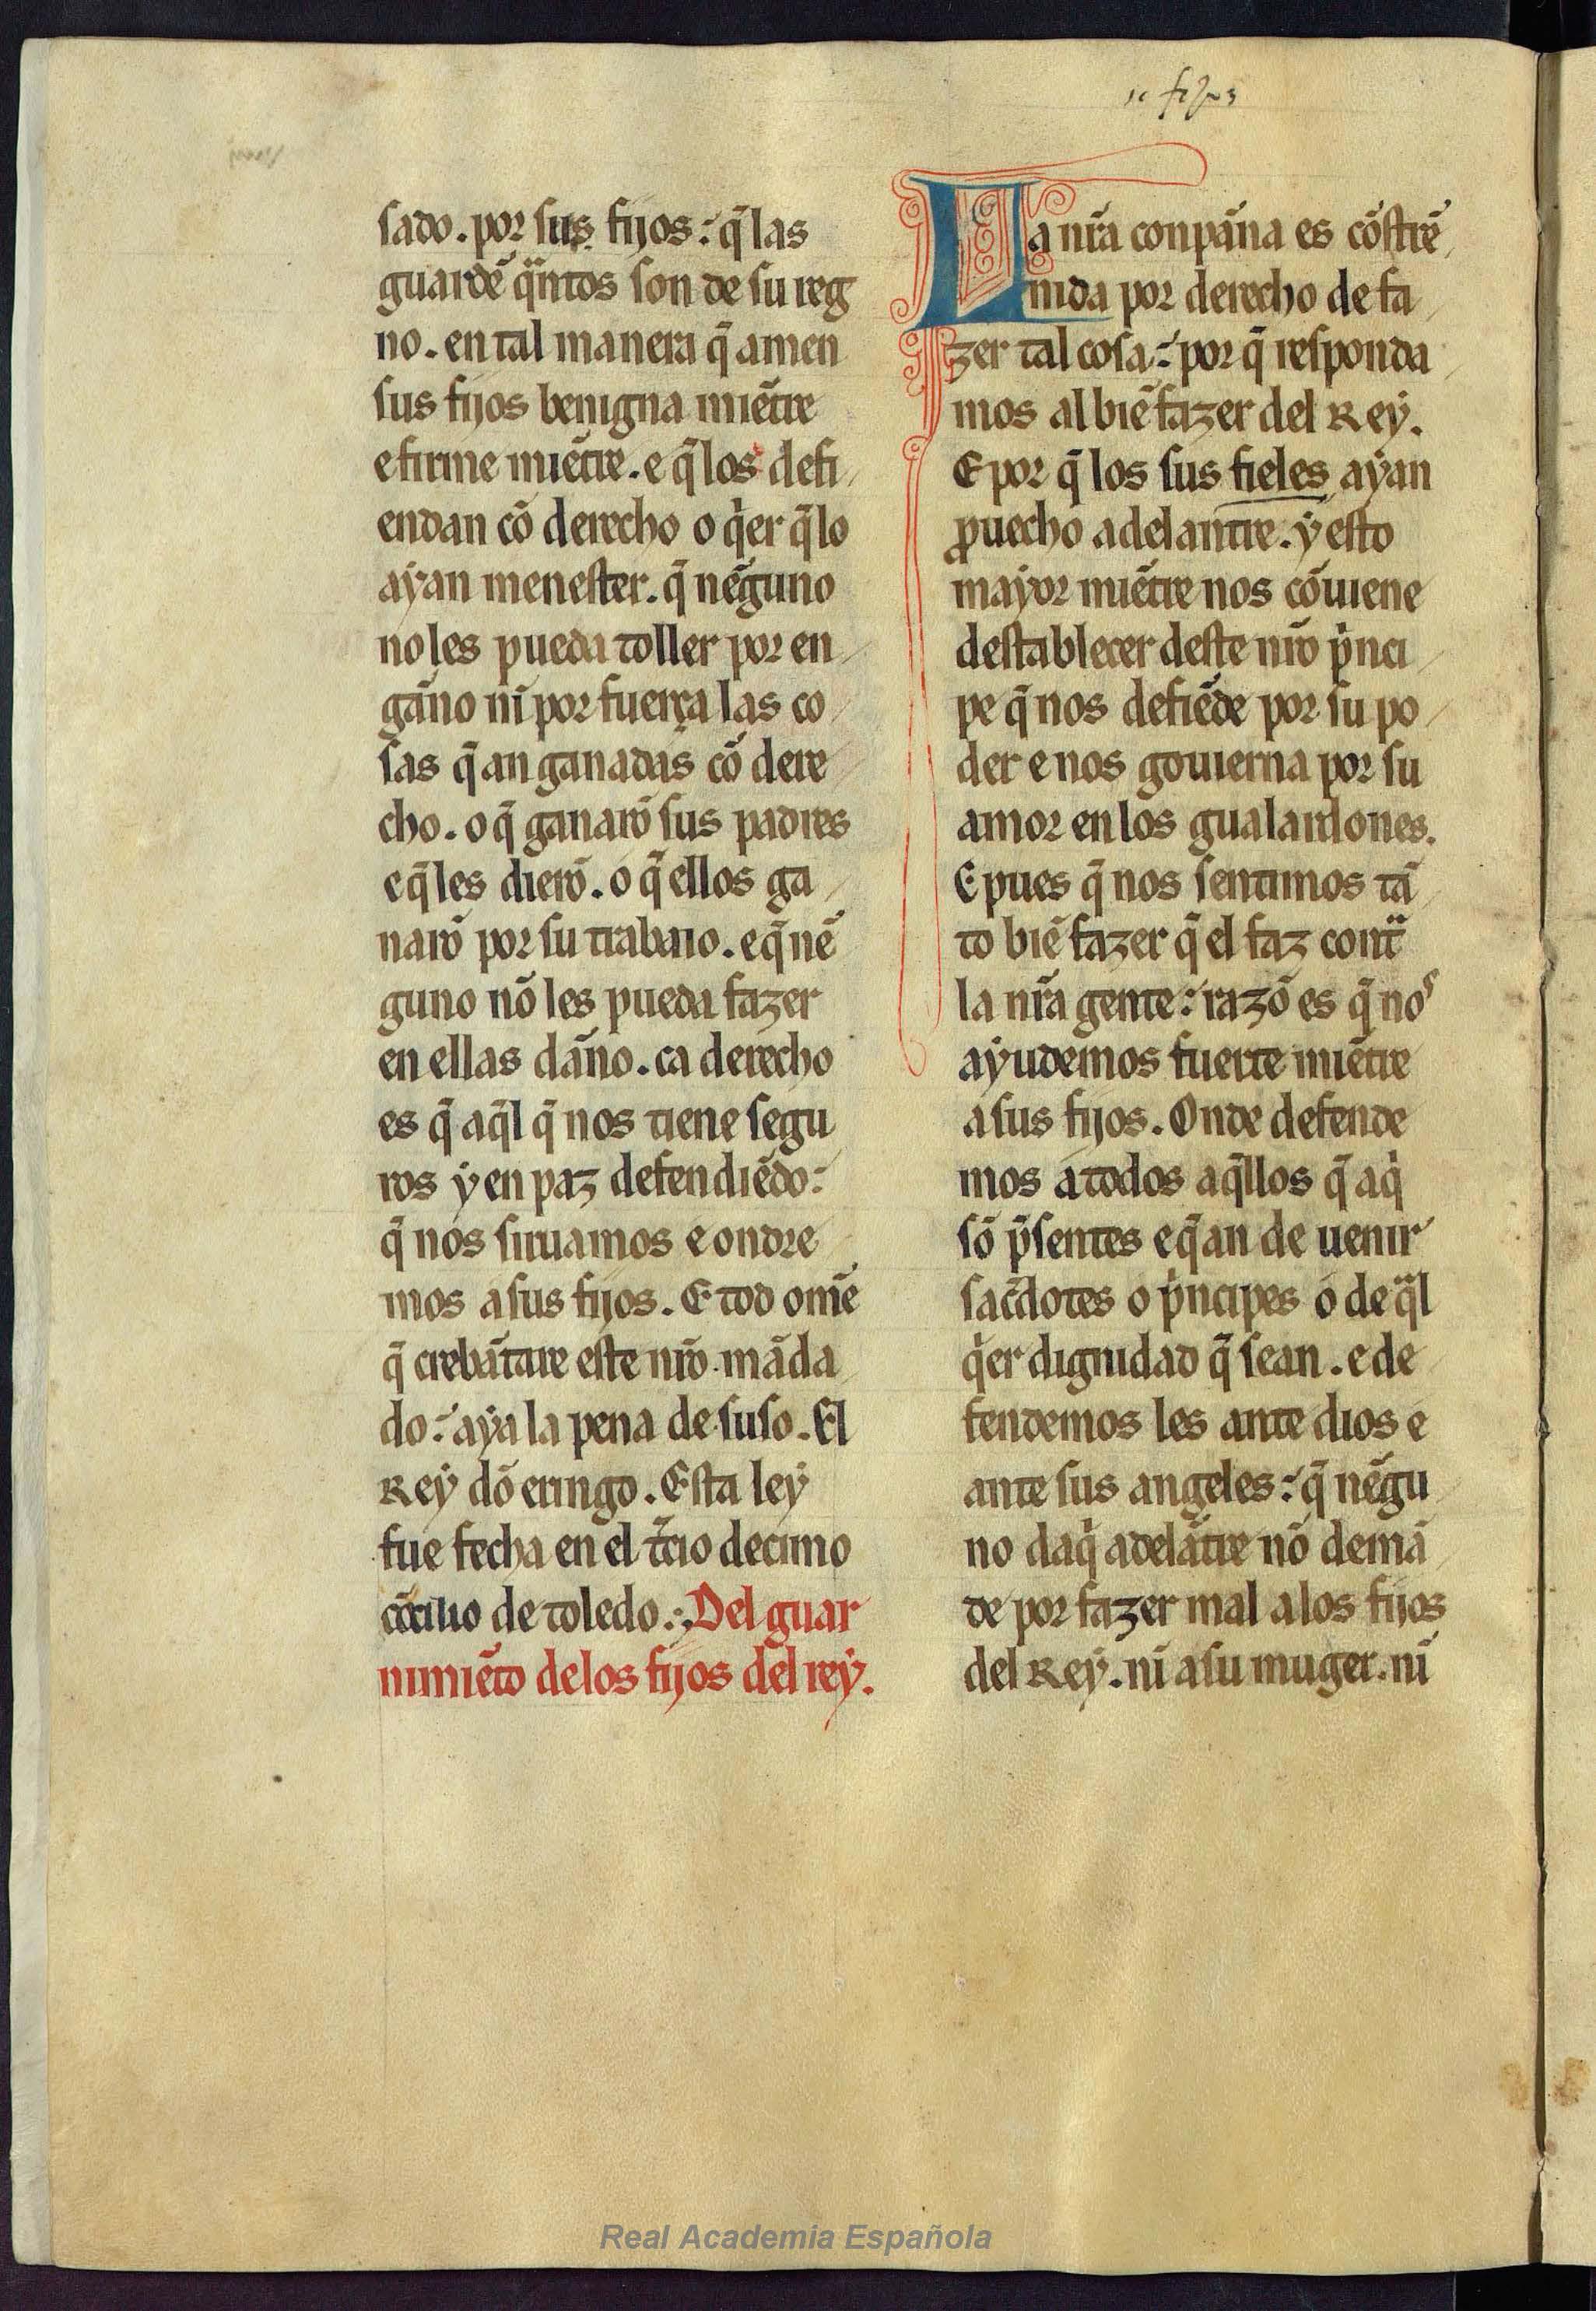 sado. por sus fijos: q̃ las
guardẽ qͣntos son de su reg
no. en tal manera q̃ amen
sus fijos benigna miẽtre
e firme miẽtre. e q̃ los defi
endan cõ derecho o qͥer q̃ lo
ayan menester. q̃ nẽguno
no les pueda toller por en
gãno nĩ por fuerça las co
sas q̃ an ganadas cõ dere
cho. o q̃ ganarõ sus padres
e q̃ les dierõ. o q̃ ellos ga
narõ por su trabaio. e q̃ nẽ
guno nõ les pueda fazer
en ellas dãno. ca derecho
es q̃ aq̃l q̃ nos tiene segu
ros y en paz defendiẽdo:
q̃ nos siruamos e ondre
mos a sus fijos. E tod omẽ
q̃ crebãtare este nr̃o mãda
do: aya la pena de suso. El
Rey dõ eringo. Esta ley
fue fecha en el t̃cio decimo
cõcilio de toledo. Del guar
nimiẽto de los fijos del rey.
La nr̃a conpãna es cõstrẽ
nida por derecho de fa
zer tal cosa: por q̃ responda
mos al biẽ fazer del Rey.
E por q̃ los sus fieles ayan
ꝓuecho adelantre. y esto
mayor miẽtre nos cõuiene
destablecer deste nr̃o pͥnci
pe q̃ nos defiẽde por su po
der e nos gouierna por su
amor en los gualardones.
E pues q̃ nos sentimos tã
to biẽ fazer q̃ el faz contͣ
la nr̃a gente: razõ es q̃ nos
ayudemos fuerte miẽtre
a sus fijos. Onde defende
mos a todos aq̃llos q̃ aqͥ
sõ p̃sentes e q̃ an de uenir
sac̃dotes o pͥncipes o de qͣl
qͥer dignidad q̃ sean. e de
fendemos les ante dios e
ante sus angeles: q̃ nẽgu
no daqͥ adelãtre nõ demã
de por fazer mal a los fijos
del Rey. nĩ a su muger. nĩ
Real Academia Española